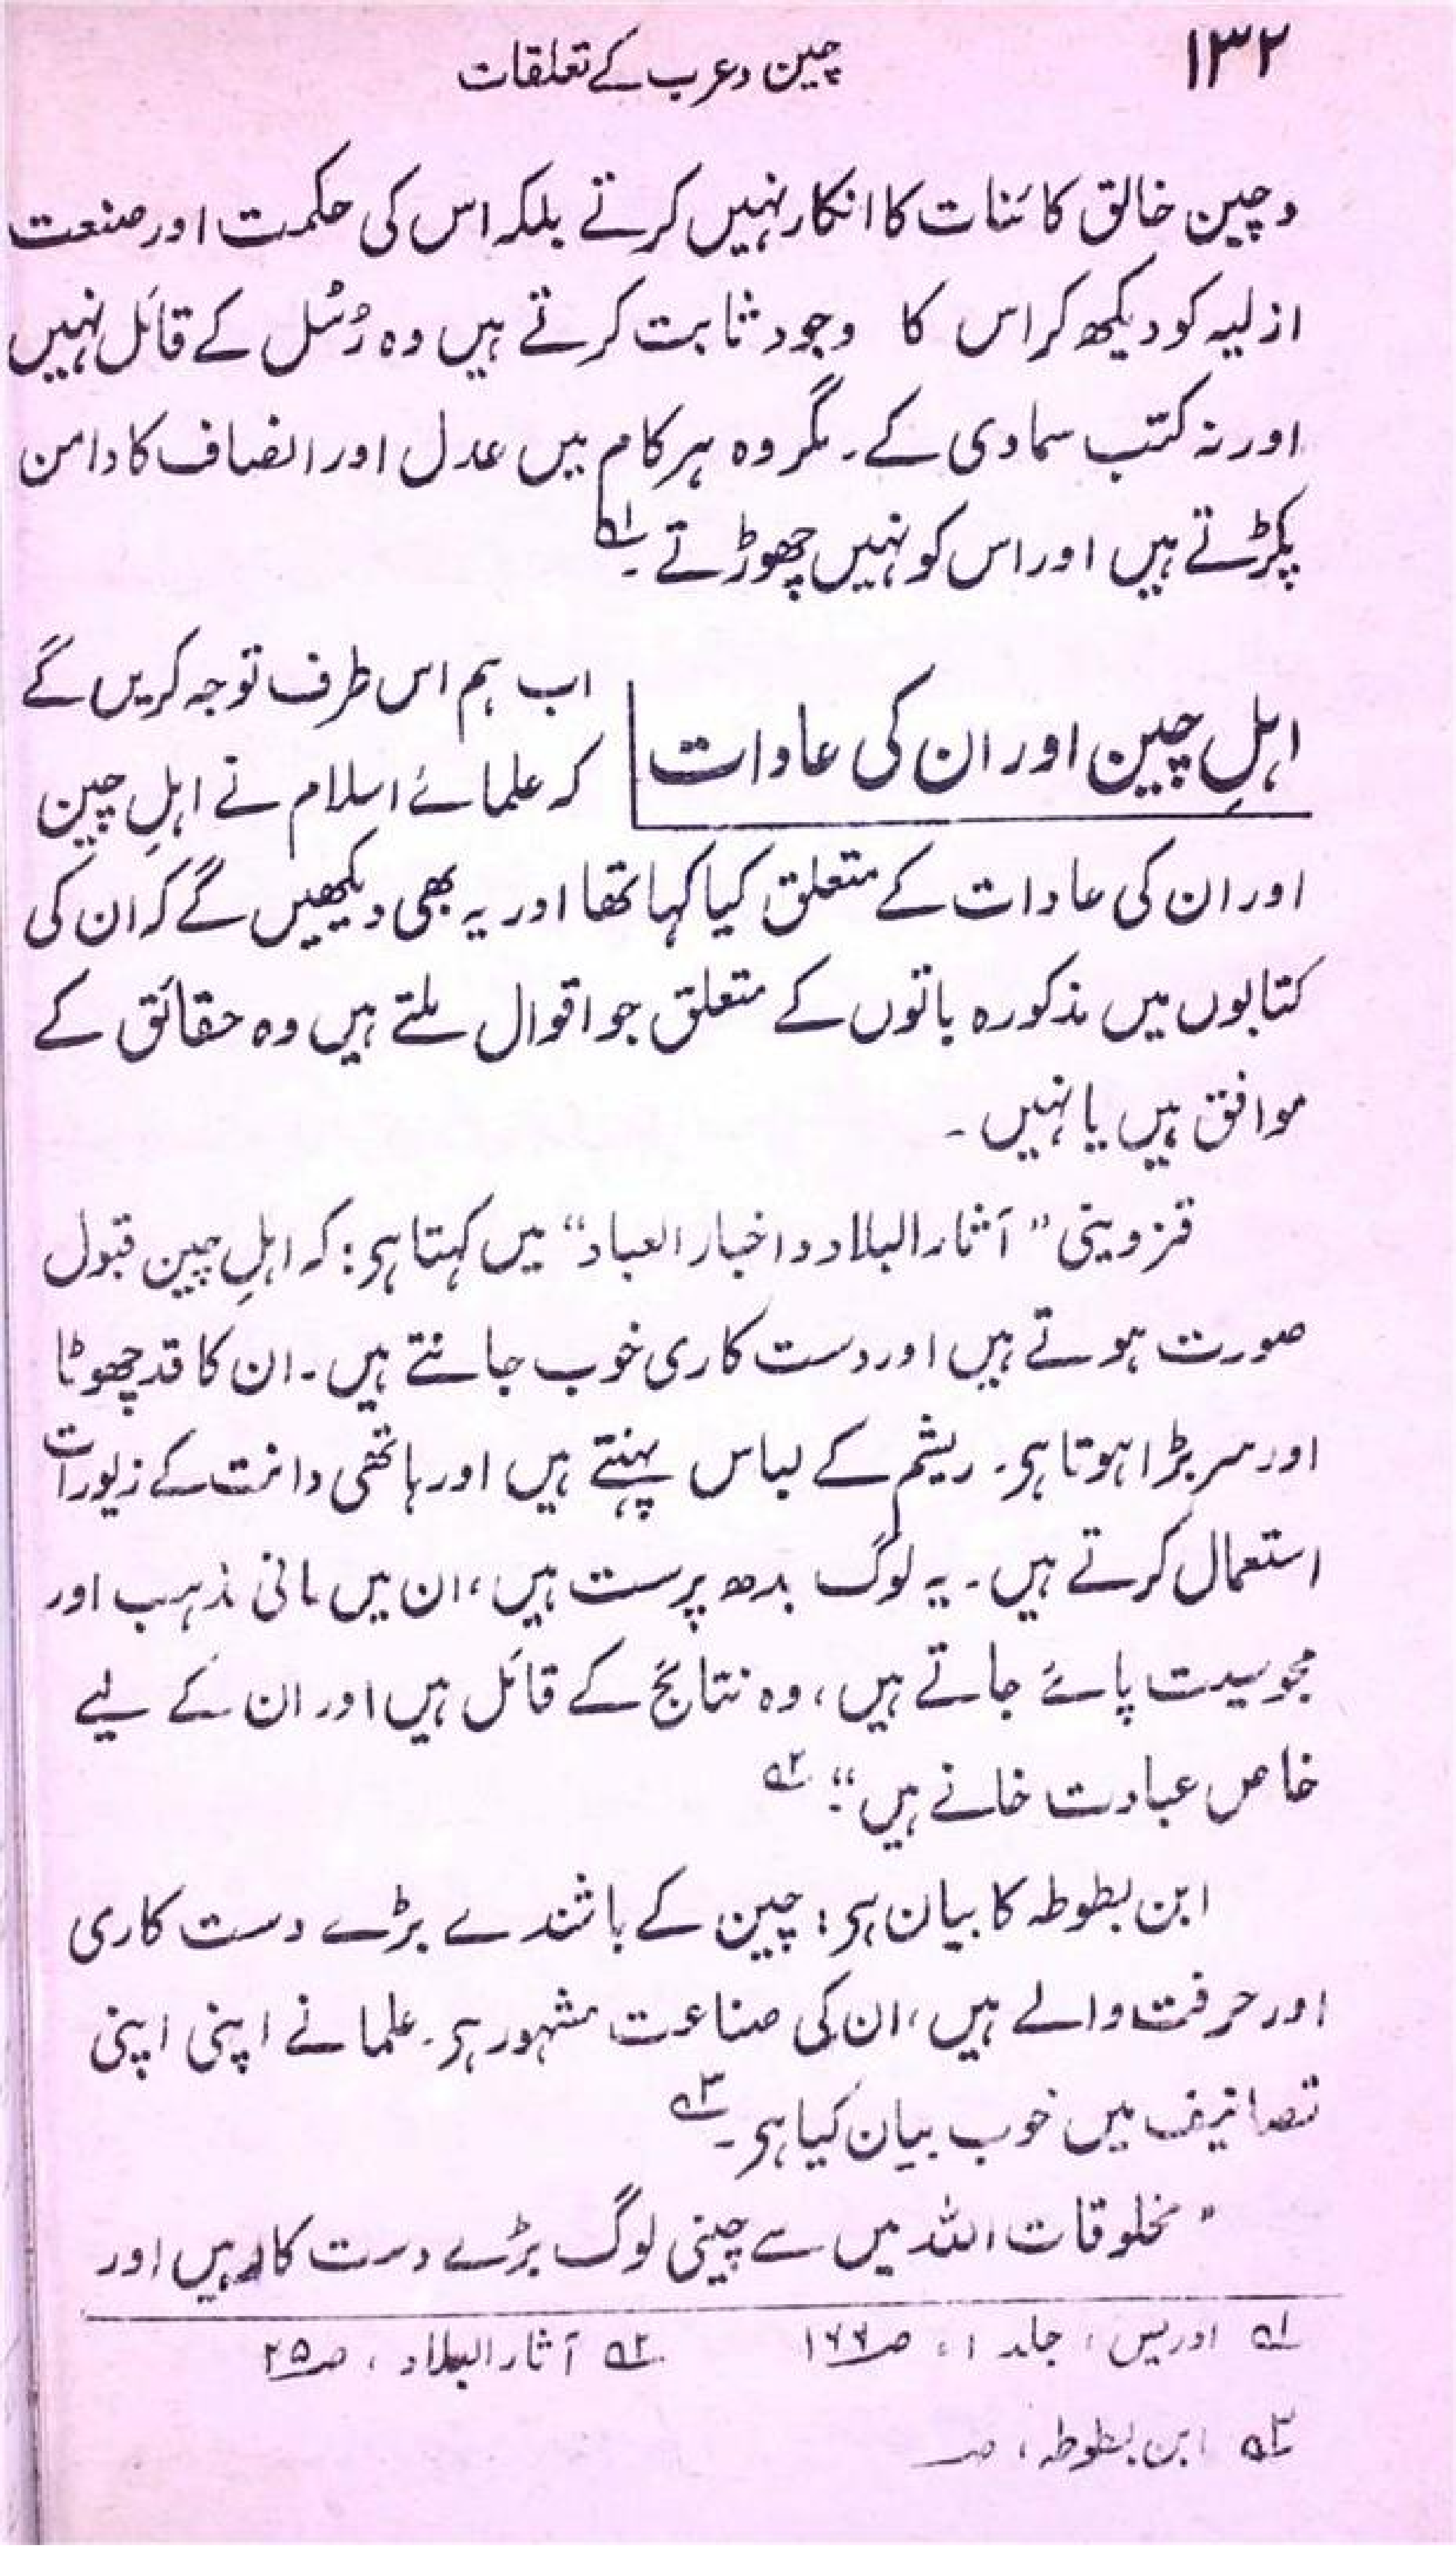 ۱۳۲
چین و عرب کے تعلقات
و چین خالق کائنات کا انکار نہیں کرتے بلکہ اس کی حکمت اور صنعت
ازلیہ کو دیکھ کر اس کا وجود ثابت کرتے ہیں وہ رُسُل کے قائل نہیں
اور نہ کتب سماوی کے۔ مگر وہ ہر کام میں عدل اور انصاف کا دامن
پکڑتے ہیں اور اس کو نہیں چھوڑتے۔ ؂۱
اہلِ چین اور ان کی عادات
اب ہم اس طرف توجہ کریں گے
کہ علمائے اسلام نے اہلِ چین
اور ان کی عادات کے متعلق کیا کہا تھا اور یہ بھی دیکھیں گے کہ ان کی
کتابوں میں مذکورہ باتوں کے متعلق جو اقوال ملتے ہیں وہ حقائق کے
موافق ہیں یا نہیں۔
قزوینی ”آثار البلاد و اخبار العباد“ میں کہتا ہی: کہ اہلِ چین قبول
صورت ہوتے ہیں اور دست کاری خوب جانتے ہیں۔ ان کا قد چھوٹا
اور سر بڑا ہوتا ہی۔ ریشم کے لباس پہنتے ہیں اور ہاتھی دانت کے زیورات
استعمال کرتے ہیں۔ یہ لوگ بدھ پرست ہیں، ان میں مانی مذہب اور
مجوسیت پائے جاتے ہیں، وہ نتائج کے قائل ہیں اور ان کے لیے
خاص عبادت خانے ہیں“۔ ؂۲
ابن بطوطہ کا بیان ہی: چین کے باشندے بڑے دست کاری
اور حرفت والے ہیں، ان کی صناعت مشہور ہی۔ علما نے اپنی اپنی
تصانیف میں خوب بیان کیا ہی۔ ؂۳
”مخلوقات اللہ میں سے چینی لوگ بڑے دست کار ہیں اور
؂۱ ادریس، جلد ۱، صـ۱۶۶ ؂۲ آثار البلاد، صـ۲۵
؂۳ ابن بطوطہ، صـ